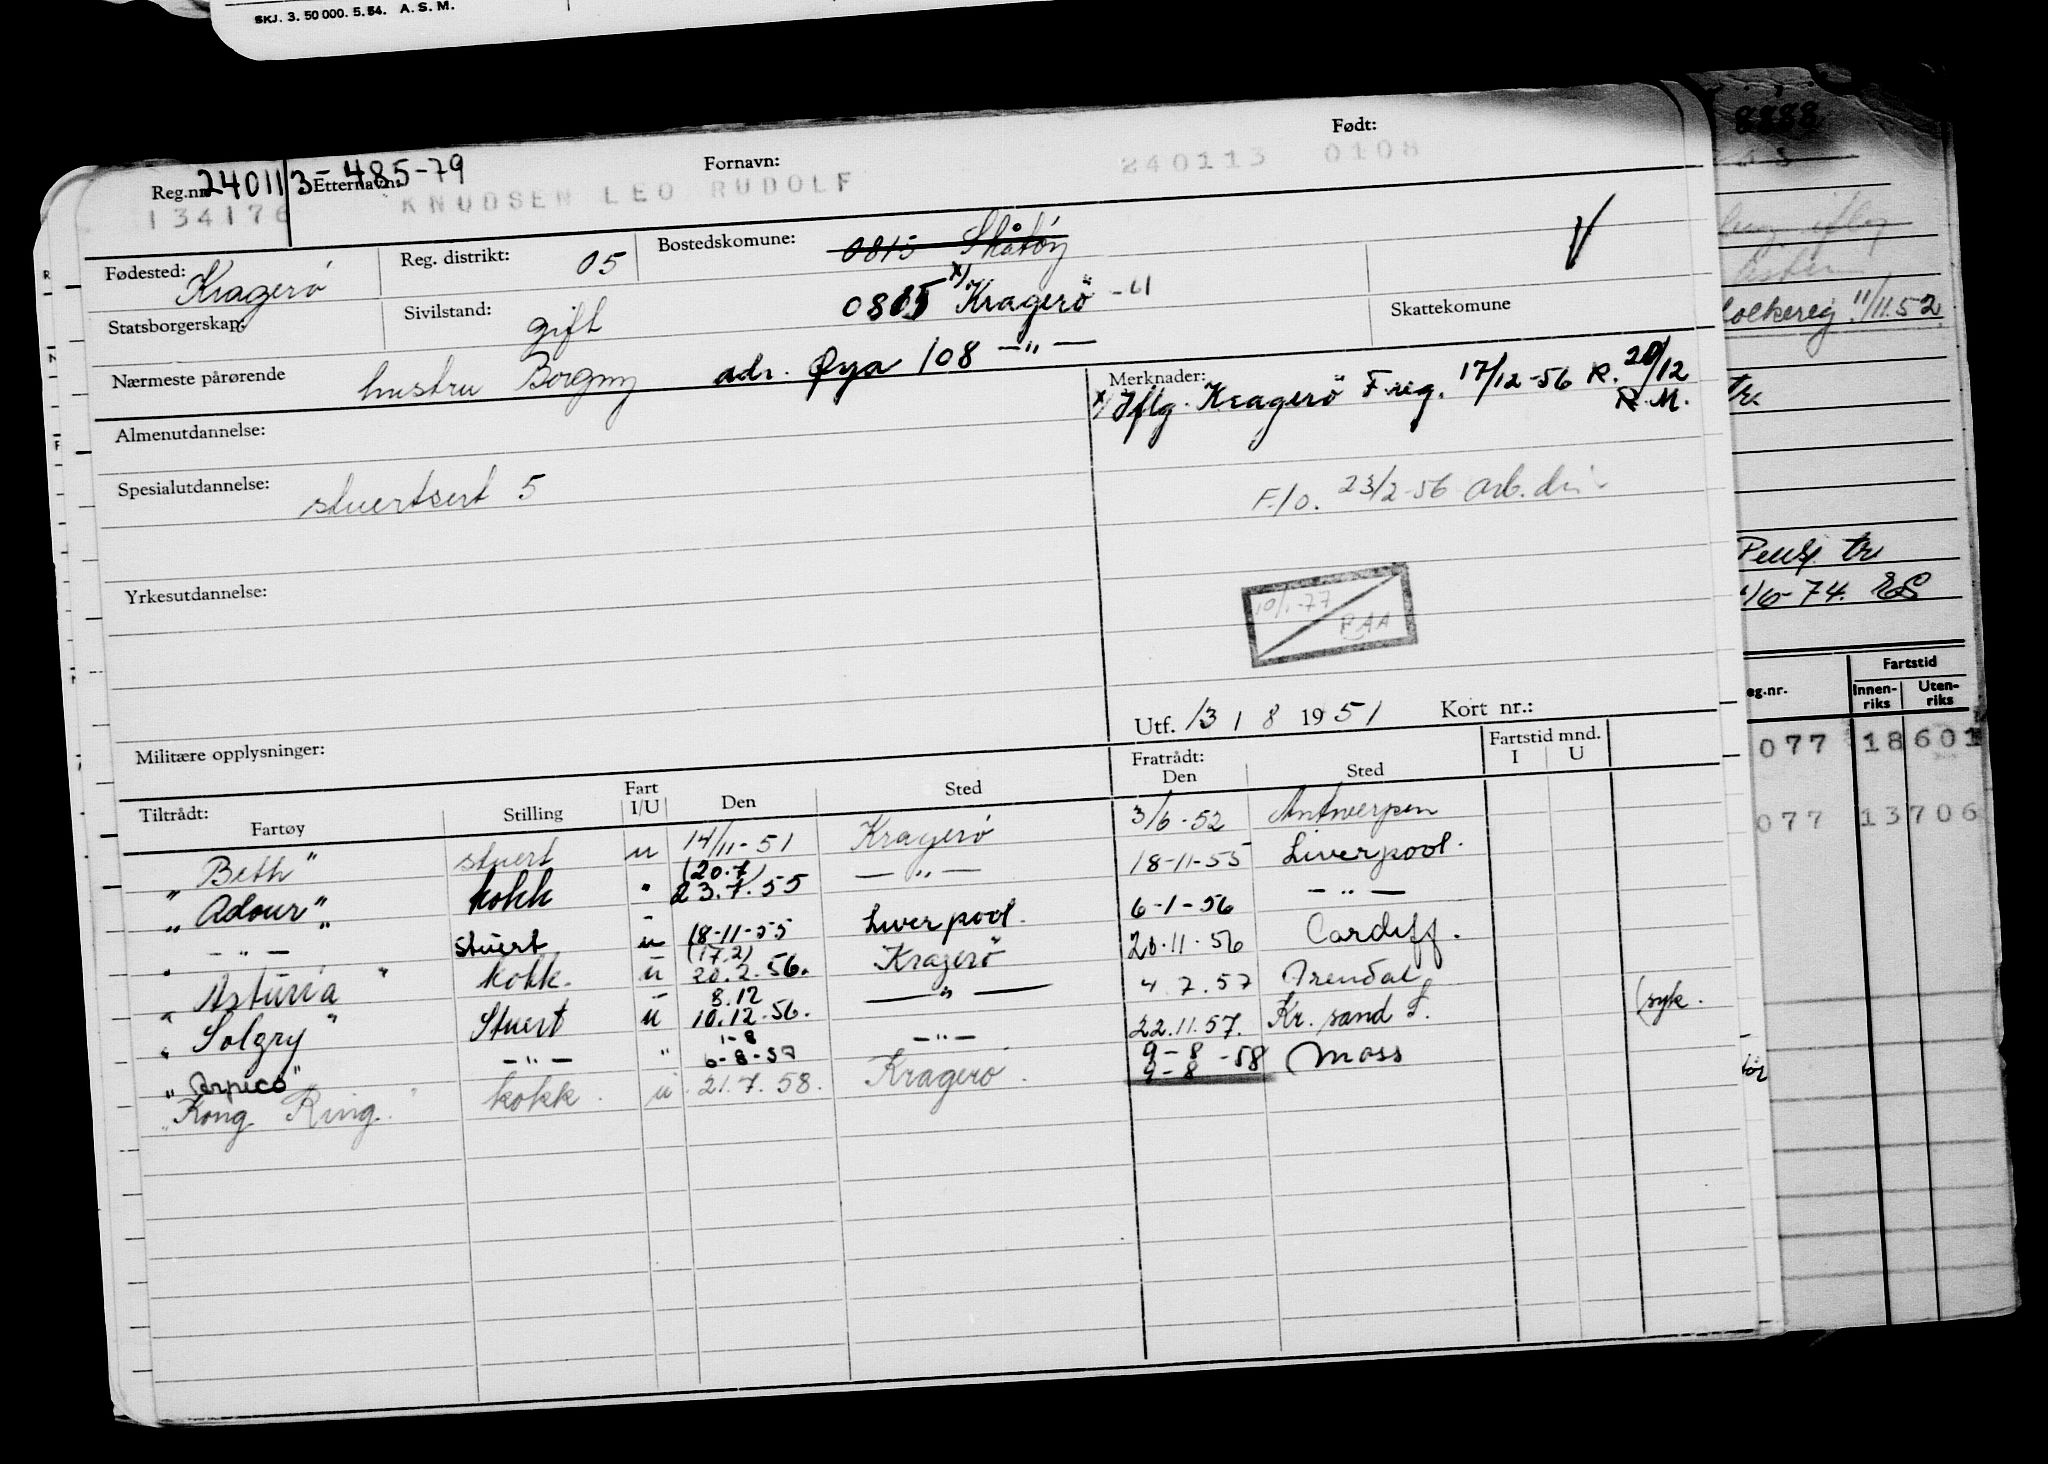 SKJ. 3. 50 000. 5. 54. A. S. M.
Reg.nr. 240113-485-79 Etternavn: Fornavn: Født:
134176 KNUDSEN LEO RUDOLF 240113 0108
Fødested: Kragerø Reg. distrikt: 05 Bostedskomune: 0815 Skåtøy
Statsborgerskap: Sivilstand: gift 0815 x) Kragerö -u Skattekomune
Nærmeste pårørende hustru Borgny adr. Øya 108 —"—
Merknader: x) Iflg. Kragerö F.reg. 17/12-56 R. 20/12
R.M.
Almenutdannelse:
Spesialutdannelse: stuertsert 5
F/o. 23/2-56 arb. dir
Yrkesutdannelse:
10/1-77
Utf. 13/8 1951 Kort nr.:
Militære opplysninger:
Tiltrådt: Fartøy Stilling Fart I/U Den Sted Fratrådt: Den Sted Fartstid mnd. I U
"Beth" stuert u 14/11-51 Kragerø 3/6-52 Antwerpen
"Adour" kokk " (20.7) 23.7.55 —"— 18-11-55 Liverpool.
" —"— " stuert u 18-11-55 Liverpool. 6-1-56 —"—
"Asturia" kokk. u (17.2) 20.2.56. Kragerö 20.11.56 Cardiff.
"Solgry" Stuert u 8.12 10.12.56. —"— 4.7.57 Arendal
"Arpico" —"— " 1-8 6-8-57 —"— 22.11.57. Kr. sand S. (syk.
"Kong Ring" kokk. u 21.7.58. Kragerø. 9-8-58 Moss
9-8
8888
folkereg. 11/11.52
tr.
Pensj. tr
/6-74. ES
eg.nr. Fartstid
Innen-riks Uten-riks
077 18 601
077 13 706